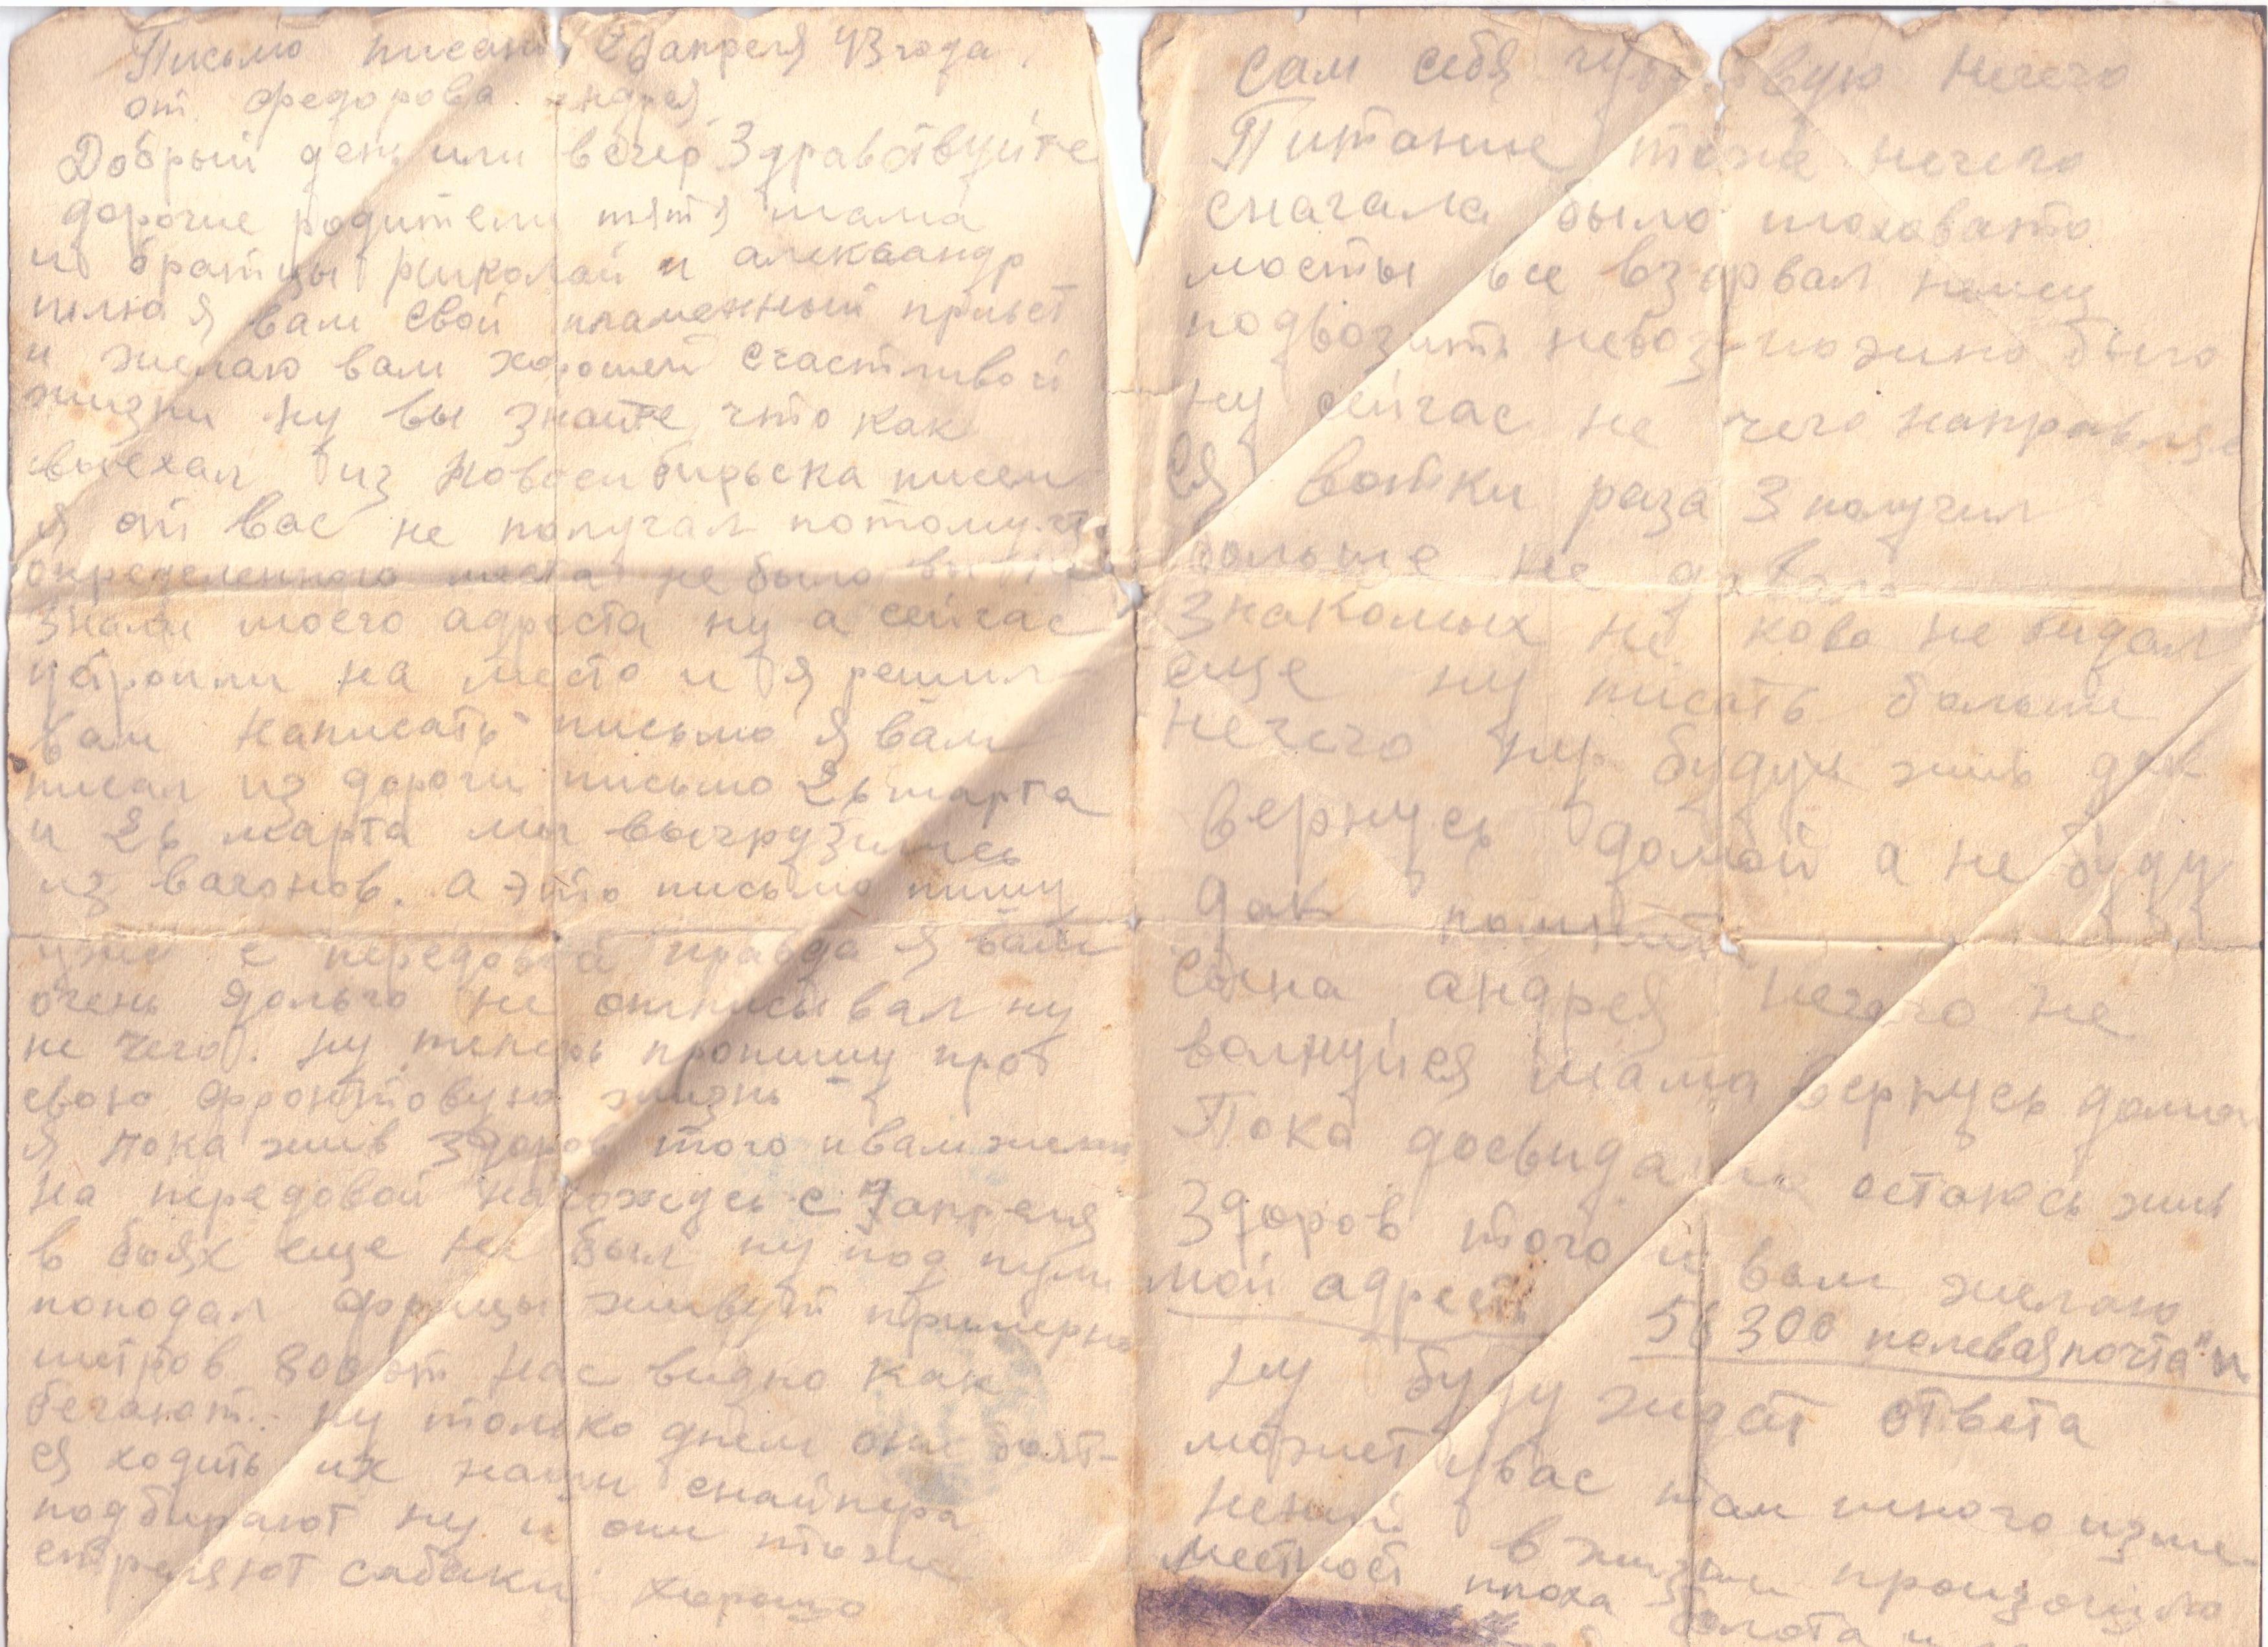 Письмо писано 20 апреля 43 года
от Федорова андрея
Добрый день или вечер Здравствуйте
дорогие родители тятя мама
и братцы Николай и александр
шлю я вам свой пламенный привет
и желаю вам хорошей счастливой
жизни ну вы знаите что как
выехал из Новосибирьска писем
я от вас не получал потому что
определенного места не было вы не
знали моего адреста ну а сейчас
устроили на место и я решил
вам написать письмо я вам
писал из дороги письмо 26 марта
и 26 марта мы выгрузились
из вагонов. а это письмо пишу
уже с передовой правда я вам
очень долго не описывал ну
не чего. ну теперь пропишу про
свою фронтовую жизнь
я пока жив здоров того и вам желаю
на передовой нахожусь с 7 апреля
в боях еще не был ну под пули
поподал фрицы живут примерно
метров 800 от нас видно как
бегают. ну только днем они боят-
ся ходить их наши снайпера
подбирают ну и они тоже
стреляют сабаки хорошо
сам себя чувствую нечего
Питание тоже нечего
сначала было плоховато
мосты все взорвал немец
подвозить невозможно было
ну сейчас не чего направляе
ся вотки раза 3 получил
больше не давали
знакомых не кова не видал
еще ну писать больше
нечего ну буду жив дак
вернусь домой а не буду
дак помните
сына андрея нечего не
волнуйся мама вернусь домой
Пока досвидания остаюсь жив
здоров того и вам желаю
мой адрест
56300 полевая почта "и"
ну буду ждат ответа
может у вас там много изме-
нений в жизни произошло
местност плоха болота и